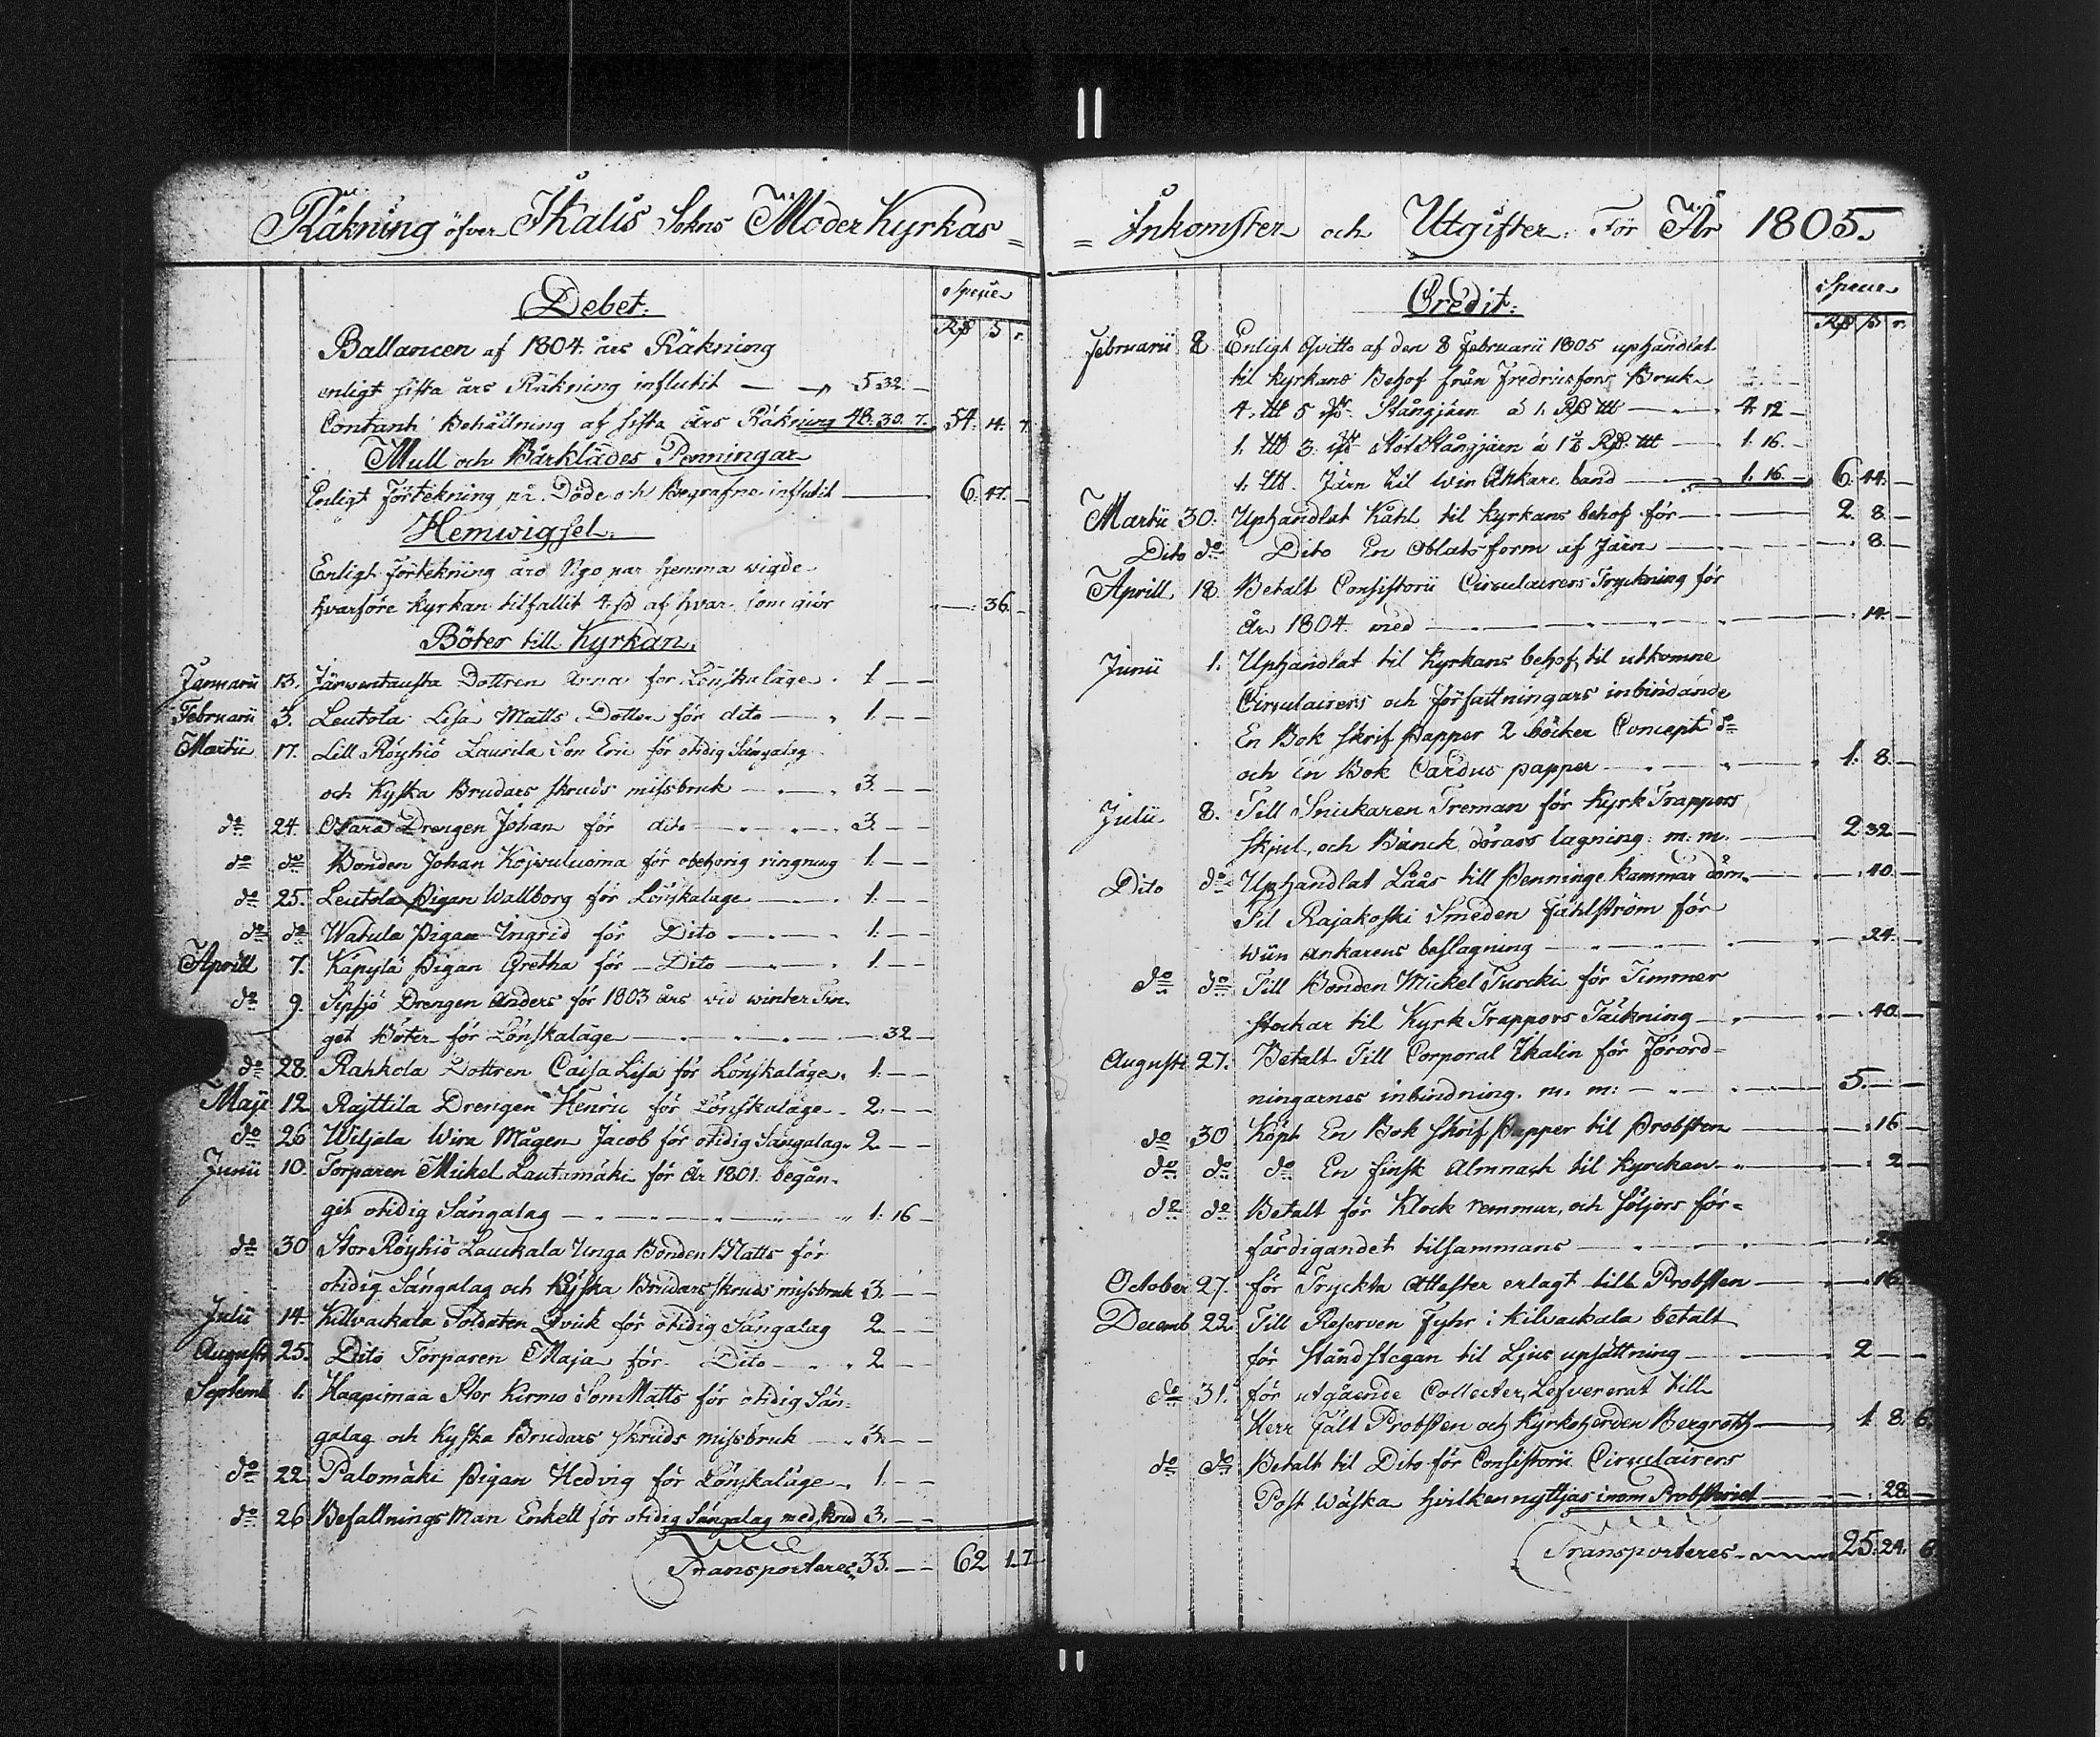 Räkning öfver Ikalis Sokns Moder Kyrkas =
Debet.
Specie
Rß ß r.
Ballancen af 1804. års Räkning
enligt sista års Räkning influtit — 5 32. —
Contant Behållning af sista Års Räkning 48. 30. 7. 54. 14. 7.
Mull och Bårklädes Penningar
Enligt Förtekning på Döde och Begrafne influtit — 6. 47. —
Hemwigsel.
Enligt Förtekning äro Nyo par hemma wigde
hvarföre Kyrkan tilfallit 4. ß af hvar. som giör — 36. —
Böter till Kyrkan.
Januarii 13. Järwentausta Dottren Anna för Lönskaläge. 1. — —
Februarii 3. Leutola Lisa Matts Dotter för dito — 1. — —
Martii 17. Lill Röyhiö Laurila Son Eric för otidig Sängalag
och Kyska Brudars skruds missbruk — 3. — —
do 24. Osara Drengen Johan för dito — 3. — —
do do Bonden Johan Kojvuluoma för obehörig ringning 1. — —
do 25. Leutola Pigan Wallborg för Lönskaläge — 1. — —
do do Watula Pigan Ingrid för Dito — 1. — —
Aprill 7. Käpylä Pigan Gretha för — Dito — 1. — —
do 9. Sipsjö Drengen Anders för 1803 års vid winter Tin-
get Böter för Lönskaläge — 32 —
do 28. Rahkola Dottren Caisa Lisa för Lönskaläge. 1. — —
Maji 12 Rajttila Drengen Henric för Lönskaläge. 2. — —
do 26 Wiljala Wira Mågen Jacob för otidig Sängalag. 2 — —
Junii 10. Torparen Mickel Lautamäki för År 1801. began-
git otidig Sängalag — 1. 16 —
do 30 Stor Röyhiö Laukala Unga Bonden Matts för
otidig Sängalag och Kyska Brudars skruds missbruk 3. — —
Julii 14. Kilvackala Soldaten Qvick för otidig Sängalag 2 — —
Augusti 25. Dito Torparen Maja för Dito — 2 —
Septemb 1. Haapimaa Stor Kirmo Son Matts för otidig Sän-
galag och Kyska Brudars skruds missbruk — 3. — —
do 22 Palomäki Pigan Hedvig för Lönskaläge. 1. — —
do 26 Befallnings Man Enkell för otidig Sängalag med skrud 3. — —
Transporteres 33. — — 62 1. 7.
= Inkomster och Utgifter. För År 1805.
Credit.
Specie
Rß ß r.
Februarii 8 Enligt Qvitto af den 8 Februarii 1805 uphandlat
til Kyrkans Behof från Fredricsfors Bruk
4. Stångjärn à 1. Rß — 4. 12 —
1. 3. Stångjärn á 1 ½ Rß. — 1. 16. —
1. Järn til win Ankare band — 1. 16. — 6. 44. —
Martii 30. Uphandlat Kåhl til Kyrkans behof för — 2. 8. —
Dito do Dito En Oblats form af Järn — 8. —
Aprill 18. Betalt Consistorii Circulairers Tryckning för
År 1804. med — 14. —
Junii 1. Uphandlat til Kyrkans behof, til utkomne
Circulairers och Författningars inbindande
En Bok skrif Papper 2 böcker Concept do
och en Bok Cardus papper — 1. 8. —
Julii 8. Till Snickaren Freman för Kyrk Trappors
Skjul, och Bänck dörars lagning. m. m. — 2 32 —
Dito do Uphandlat Låås till Penninge kammar — 40. —
Til Rajakoski Smeden Fahlström för
win ankarens beslagning — 24. —
do do Till Bonden Mickel Turcki för Timmer
stockar til Kyrk Trappors Täckning — 40 —
Augusti 27. Betalt Till Corporal Ikalin för Förord-
ningarnes inbindning. m. m: — 5. — —
do 30 Köpt En Bok skrif Papper til Probsten — 16 —
do do do En finsk Almnach til Kyrckan — 2 —
do do Betalt för Klock remmar, och Söljors för-
färdigandet tilsammans —
October 27. för Tryckta Attester erlagt till Probsten — 16.
Decemb. 22. Till Reserven Fyhr i Kilvackala betalt
för ståndstegan til Ljus upsättning — 2 — —
do 31. för utgående Collecter, Lefvererat till
Herr Fält Probsten och Kyrkoherden Bergroth — 1. 8. 6.
do do Betalt til Dito för Consistorii Circulairers
Post Wäska hvilken nyttjas inom Probsteriet — 28. —
Transporteres — 25. 24. 6.